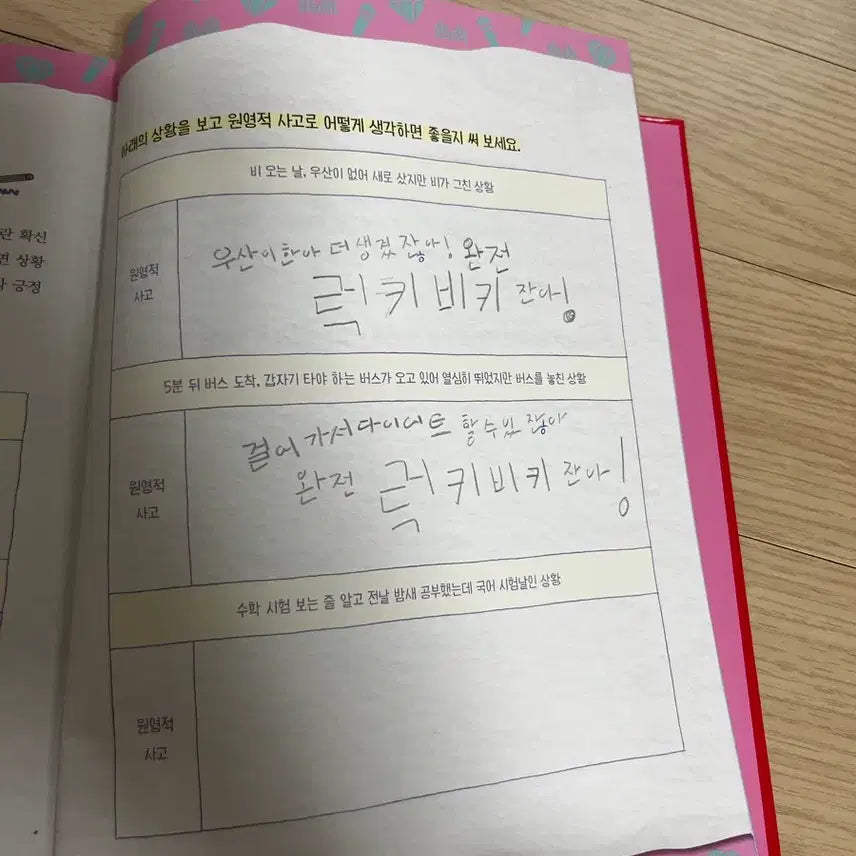 란 확신
면 상황
긍정
아래의 상황을 보고 원영적 사고로 어떻게 생각하면 좋을지 써 보세요.
비 오는 날, 우산이 없어 새로 샀지만 비가 그친 상황
원영적
사고
우산이한아 더생겼잖아! 완전
럭키비키잔아!
5분 뒤 버스 도착, 갑자기 타야 하는 버스가 오고 있어 열심히 뛰었지만 버스를 놓친 상황
원영적
사고
걸어가서다이어트 할수있잖아
완전 럭키비키잔아!
수학 시험 보는 줄 알고 전날 밤새 공부했는데 국어 시험날인 상황
원영적
사고